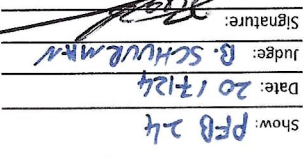 Show: PFB 24
Date: 20/7/24
Judge: B. SCHUURMAN
Signature: